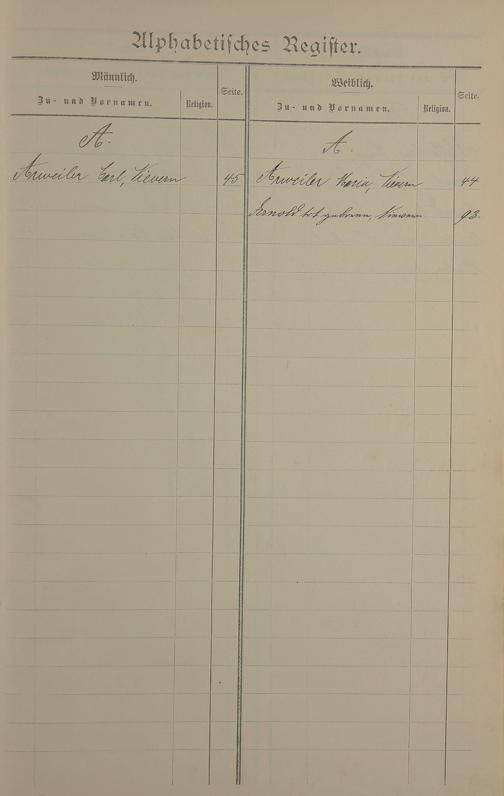 Alphabetisches Register.
Männlich.
Zu- und Vornamen.
Religion.
Seite.
A.
Arweiler Carl, Sievern 45
Weiblich.
Zu- und Vornamen.
Religion.
Seite.
A.
Arweiler Maria, Sievern 44
Arnold tot geboren, 93.